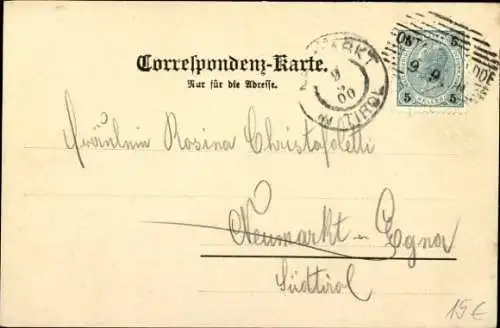 Correspondenz-Karte.
Nur für die Adresse.
NEUMARKT
9
00
TIROL
5 5
9 9
5 HELLER 5
Fräulein Rosina Christofoletti
Neumarkt - Egna
Südtirol
15€